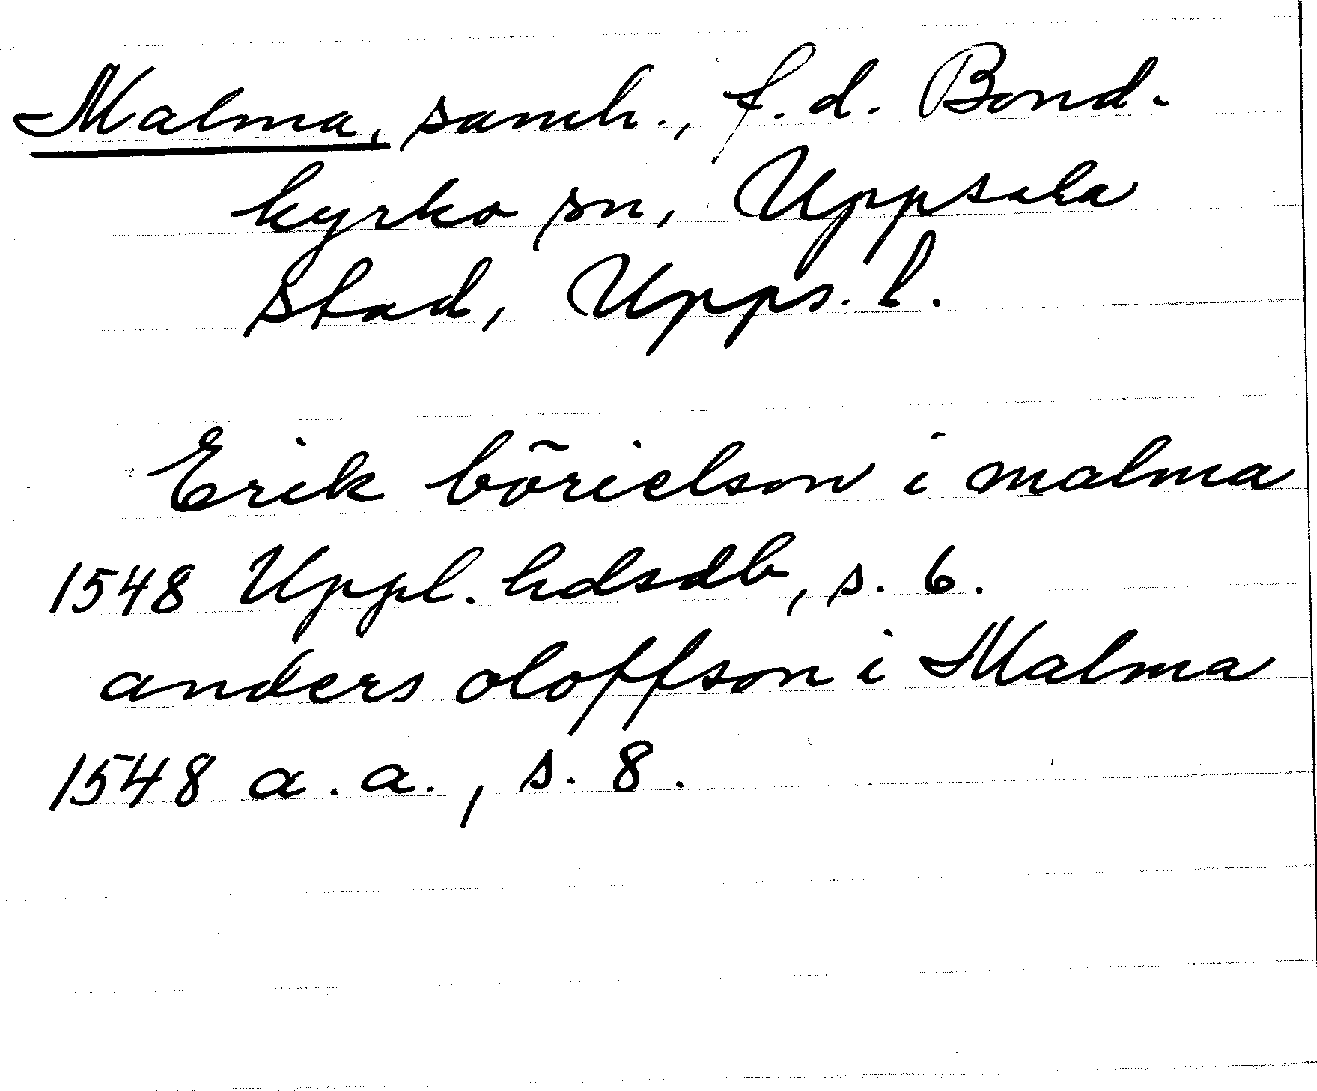 Malma, saml., f.d. Bond-
kyrko sn, Uppsala
stad, Upps. l.
Erik bõrielson i malma
1548 Uppl. hdsdb, s. 6.
anders oloffson i Malma
1548 a.a., s. 8.